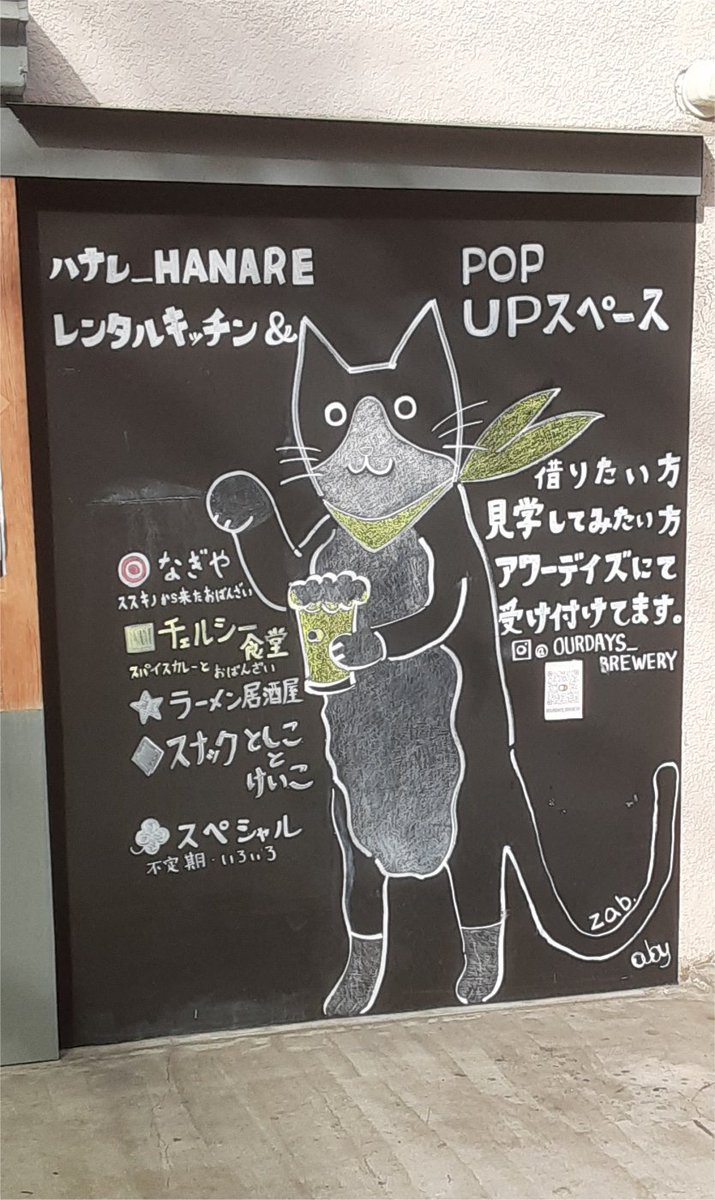 ハナレ_HANARE
レンタルキッチン&
POP
UPスペース
借りたい方
見学してみたい方
アワーデイズにて
受け付けてます。
@OURDAYS_
BREWERY
なぎや
ススキノから来たおばんざい
チェルシー
食堂
スパイスカレーとおばんざい
ラーメン居酒屋
スナックとしこ
と
けいこ
スペシャル
不定期・いろいろ
zab.
aby